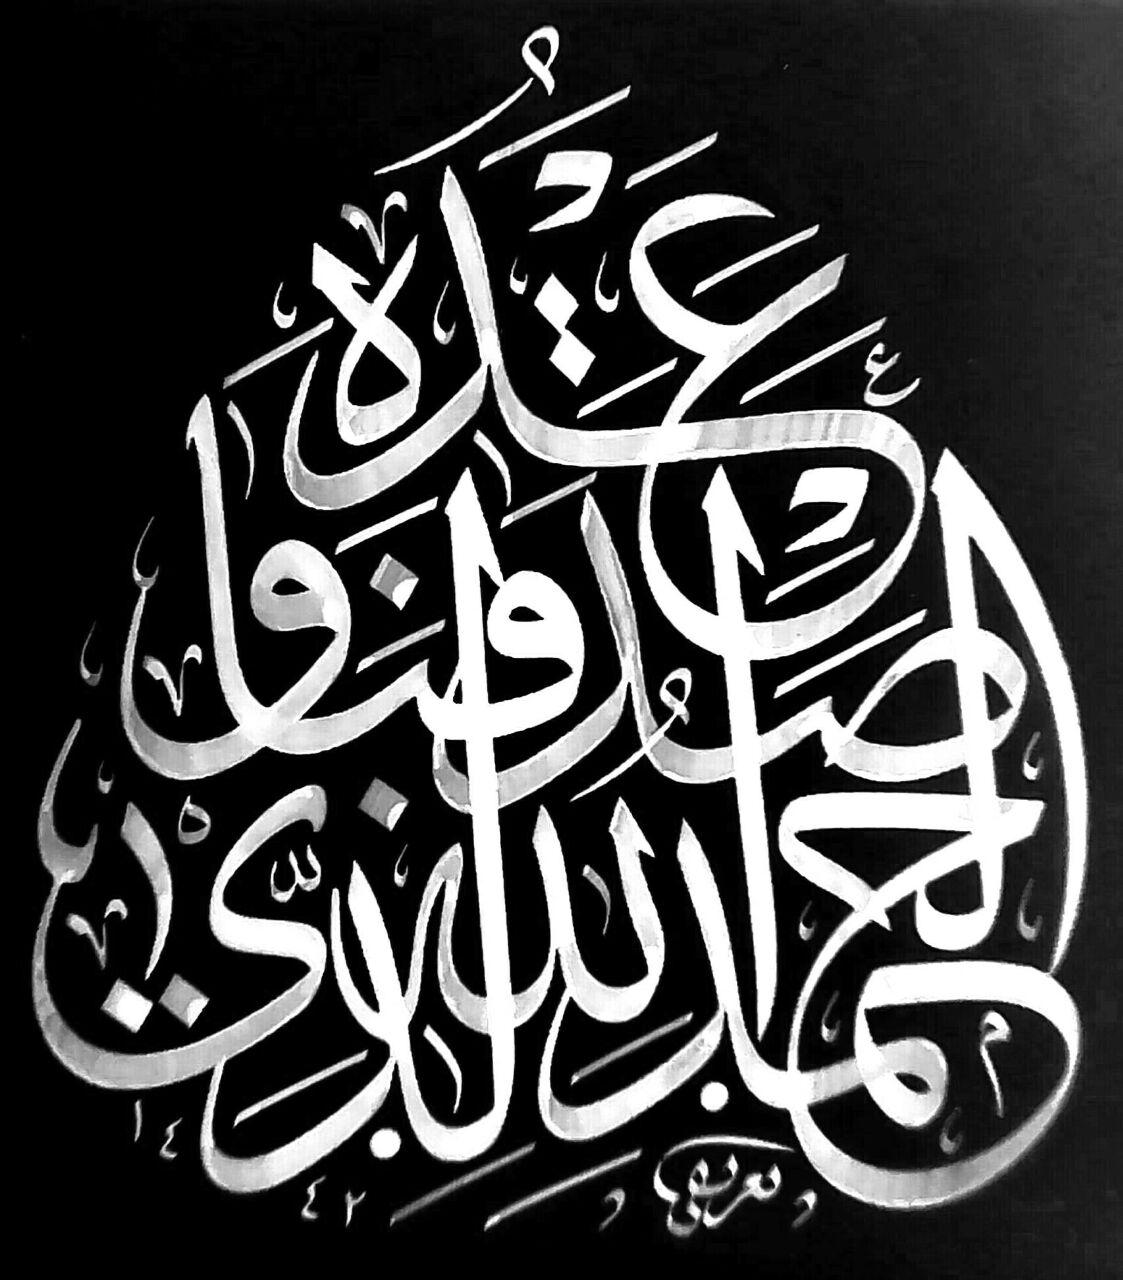 الحمد لله الذي
صدقنا
وعده
١٤٤٢